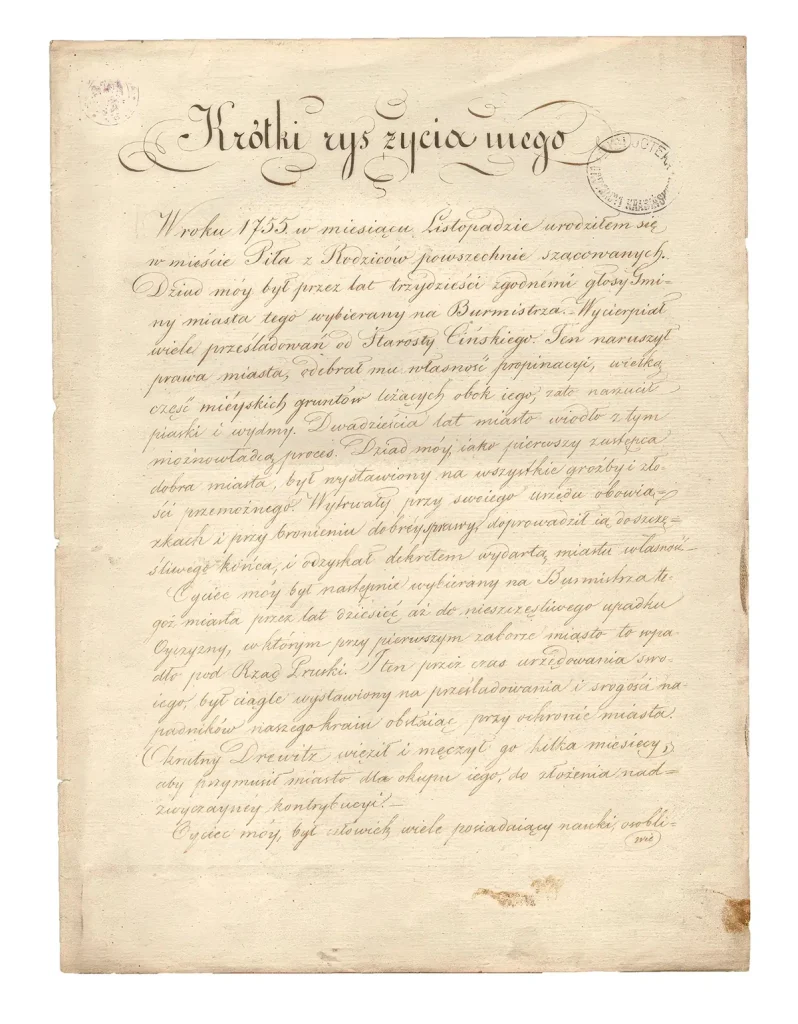 Krótki rys życia mego
W roku 1755. w miesiącu Listopadzie urodziłem się
w mieście Piła z Rodziców powszechnie szacowanych.
Dziad móy był przez lat trzydzieści zgodnémi głosy Gmi-
ny miasta tego wybierany na Burmistrza. – Wycierpiał
wiele prześladowań od Starosty Cińskiego. Ten naruszył
prawa miasta, odebrał mu własność propinacyi, wielką
część mieyskich gruntów liżących obok iego, zato narzucił
piaski i wydmy. Dwadzieścia lat miasto wiodło z tym
możnowładcą proces. Dziad móy iako pierwszy zastępca
dobra miasta, był wystawiony na wszystkie groźby i zło-
ści przemożnego. Wytrwały przy swoiego urzędu obowią=
zkach i przy bronieniu dobréy sprawy, doprowadził ią do szczę=
śliwego końca, i odzyskał dekretem wydartą miastu własność –
Oyciec móy był następnie wybierany na Burmistrza te-
goż miasta przez lat dziesięć aż do nieszczęśliwego upadku
Oyczyzny, w którym przy pierwszym zaborze miasto to wpa-
dło pod Rząd Pruski. I ten przez czas urzędowania swo-
iego, był ciągle wystawiony na prześladowania i srogości na-
padników naszego kraiu obstaiąc przy ochronie miasta.
Okrutny Drewitz więził i męczył go kilka miesięcy,
aby przymusił miasto dla okupu iego, do złożenia nad=
zwyczaynéy kontrybucyi. –
Oyciec móy, był człowiek wiele posiadaiący nauki, osobli=
wie